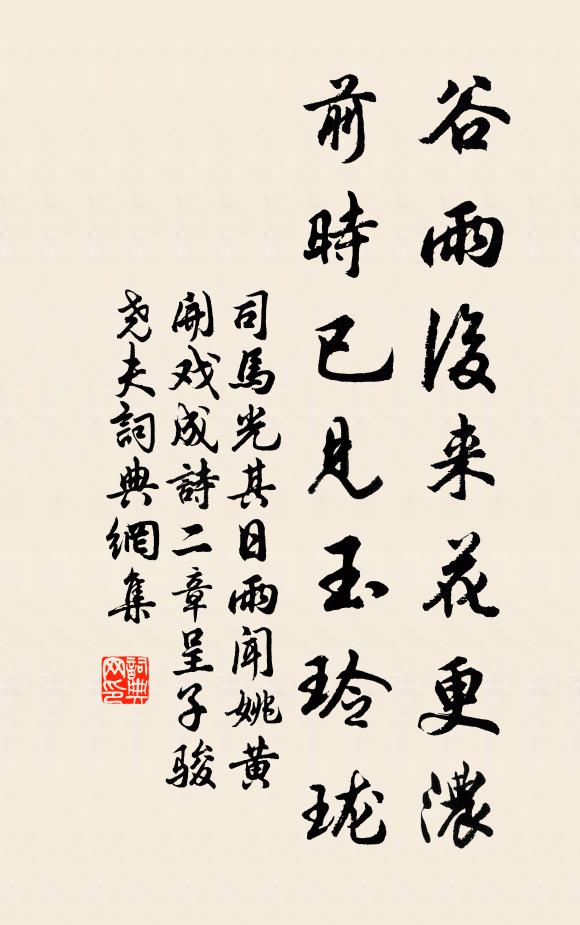 谷雨後来花更濃
前時已見玉玲珑
司馬光其日雨闻姚黄
開戏成詩二章呈子骏
尧夫詞典網集
詞典网印